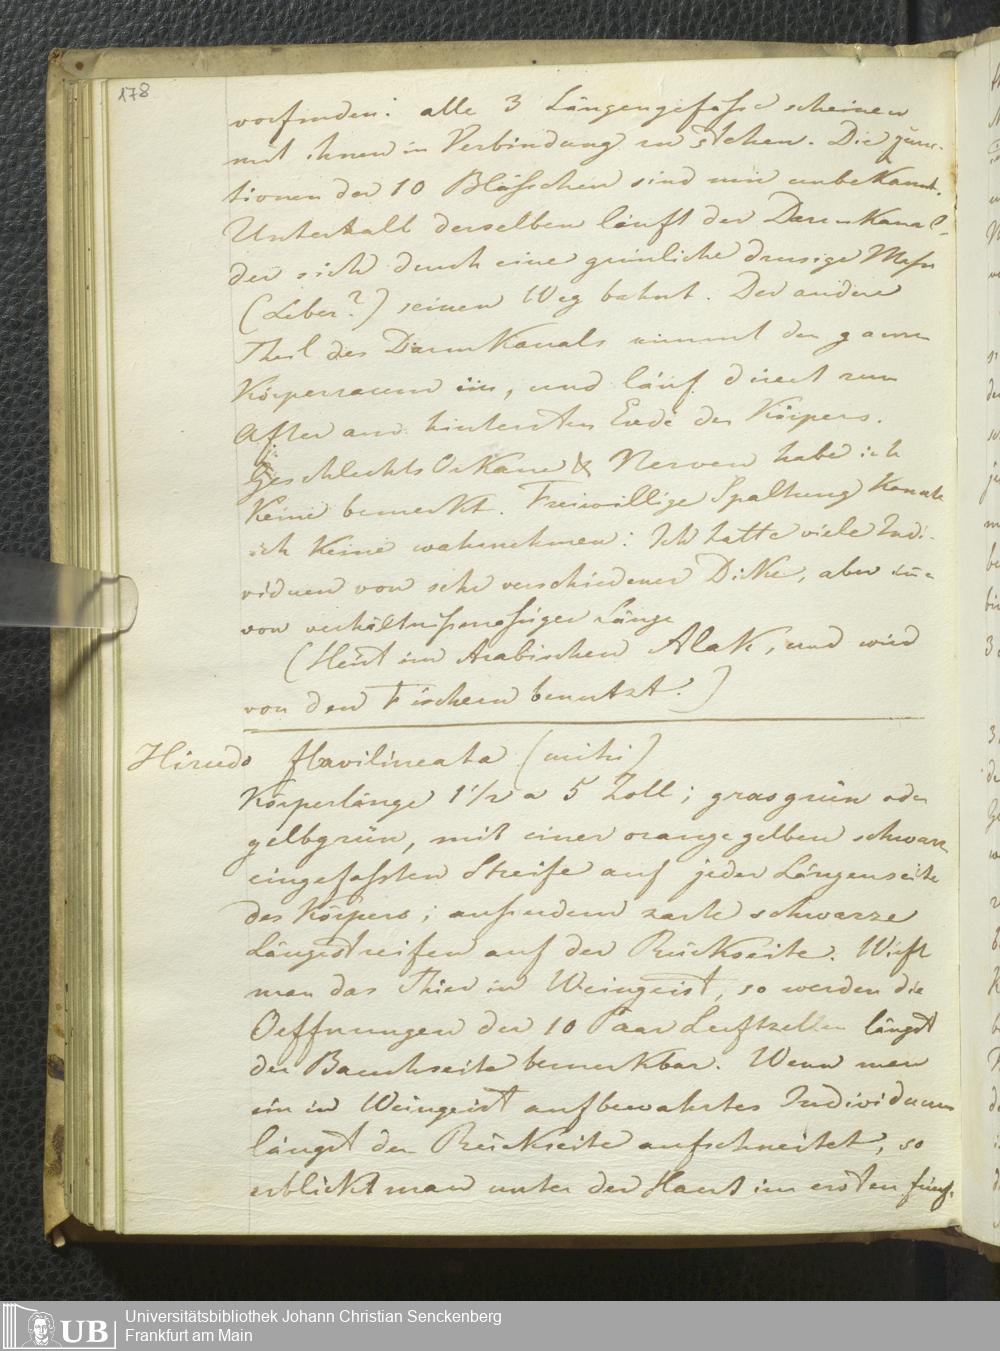 178
vorfinden: alle 3 Längengefäße scheinen
mit ihnen in Verbindung zu stehen. Die Func-
tionen der 10 Bläschen sind mir unbekannt.
Unterhalb derselben läuft der Darmkanal,
der sich durch eine grünliche drusige Masse
(Leber?) seinen Weg bahnt. Der andere
Theil des Darmkanals nimmt den ganzen
Körperraum ein, und läuf direct zum
After am hintersten Ende des Körpers.
Geschlechts Orkane & Nerven habe ich
keine bemerkt. Freiwillige Spaltung konnte
ich keine wahrnehmen: Ich hatte viele Indi-
viduen von sehr verschiedener Dike, aber
von verhältnißmäßiger Länge
(Heist im Arabischen Alak, und wird
von den Fischern benutzt.)
Hirudo flavilineata (mihi)
Körperlänge 1 1/2 a 5 Zoll; grasgrün oder
gelbgrün, mit einer orangegelben schwarz
eingefaßten Streife auf jeder Längenseite
des Körpers; außerdem zarte schwarze
Längsstreifen auf der Rückseite. Wirft
man das Thier in Weingeist, so werden die
Oeffnungen der 10 Paar Luftzellen längst
der Bauchseite bemerkbar. Wenn man
ein in Weingeist aufbewahrtes Individuum
längst der Rückseite aufschneitet, so
erblickt man unter der Haut im ersten fünf-
UB
Universitätsbibliothek Johann Christian Senckenberg
Frankfurt am Main